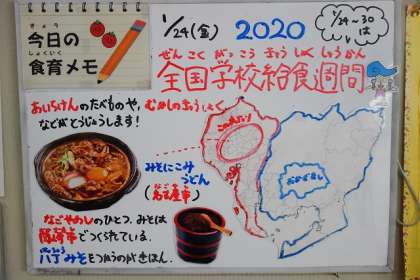 きょう
今日の
しょくいく
食育メモ
1/24(金) 2020
1/24~30
は
ぜんこくがっこうきゅうしょくしゅうかん
全国学校給食週間
あいちけんのたべものや、
むかしのきゅうしょく
などがとうじょうします!
みそにこみ
うどん
なごやし
(名古屋市)
なごやめしのひとつ。みそは
岡崎市でつくられている、
八丁みそをつかうのがきほん。